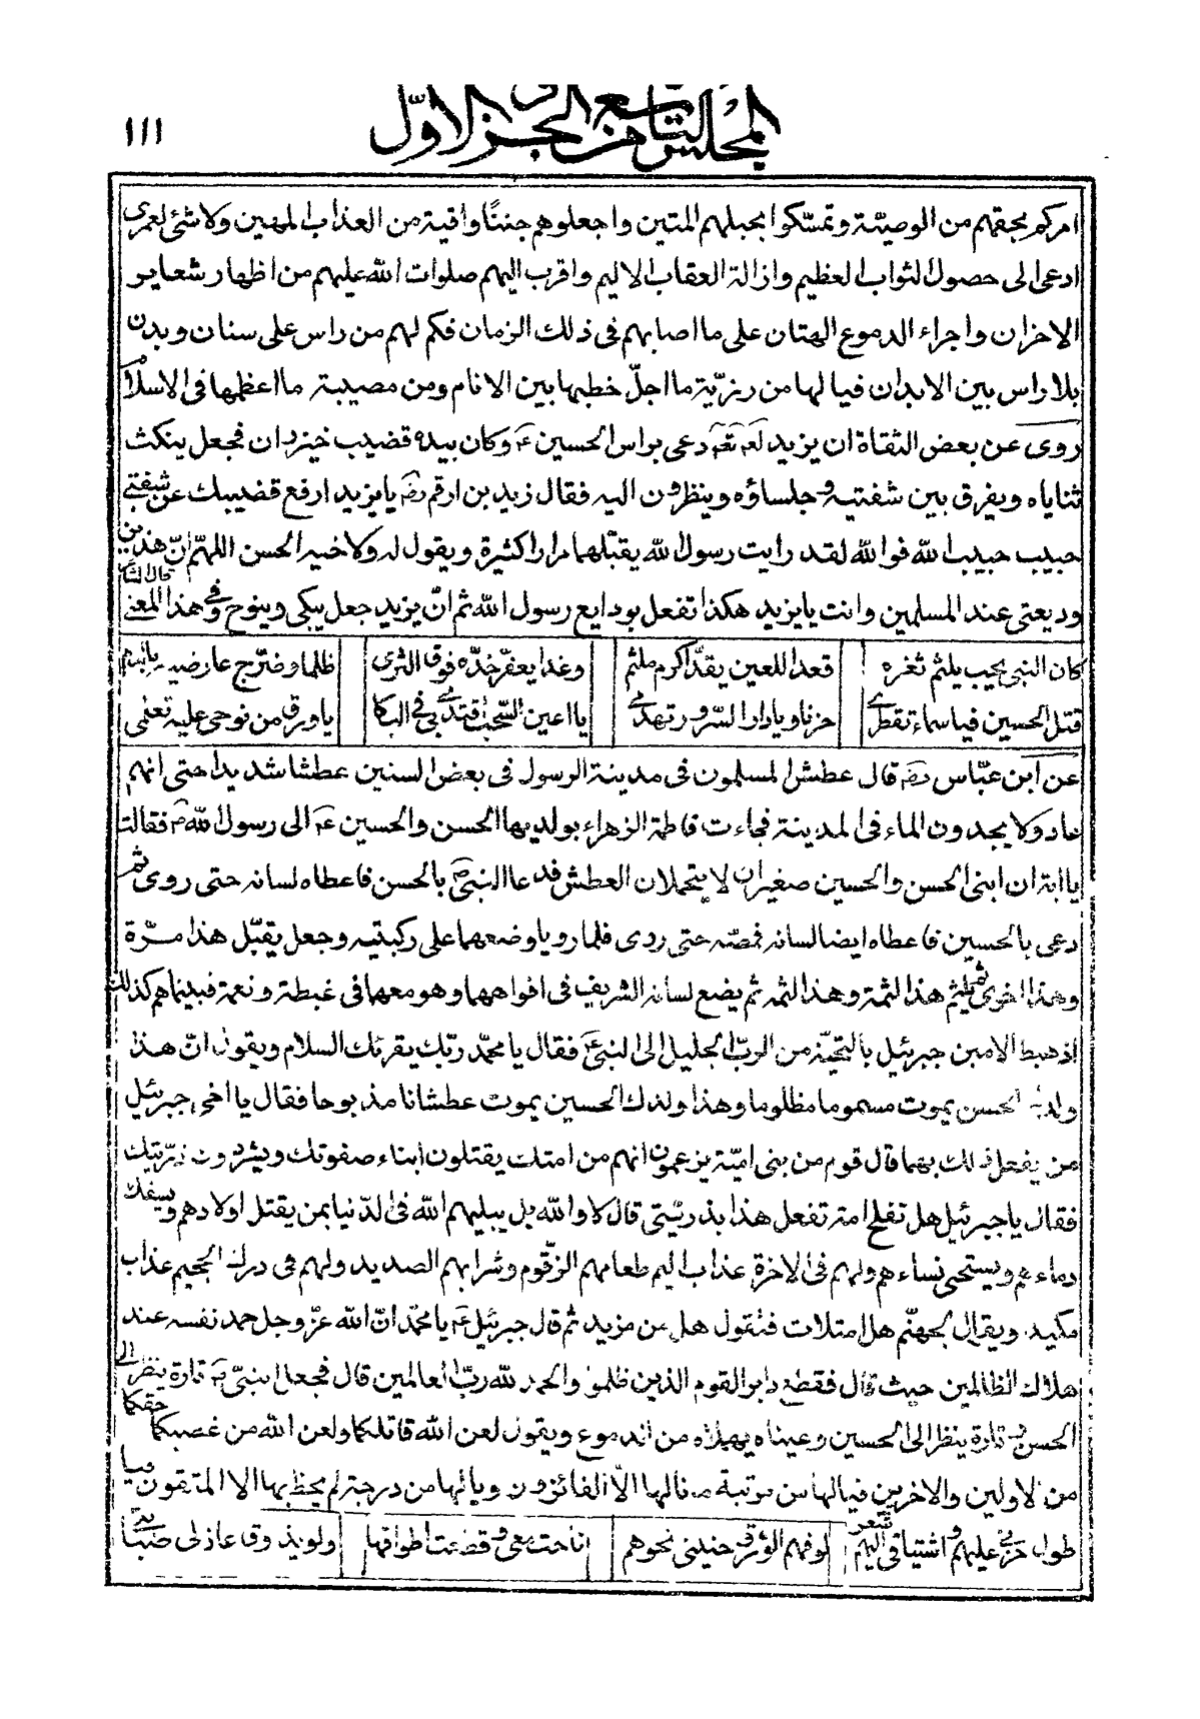 المجلس التاسع من الجزء الاوّل
١١١
امركم بحقهم من الوصيّة وتمسّكوا بحبلهم المتين واجعلوهم جننًا واقية من العذاب المهين ولا شئ لعمرى
ادعى الى حصول الثواب العظيم وازالة العقاب الاليم واقرب اليهم صلوات الله عليهم من اظهار شعاير
الاحزان واجراء الدموع الهتان على ما اصابهم فى ذلك الزمان فكم لهم من راس على سنان وبدن
بلا راس بين الابدان فيا لها من رزيّة ما اجلّ خطبها بين الانام ومن مصيبة ما اعظمها فى الاسلام
روى عن بعض الثقاة ان يزيد لعنه الله دعى براس الحسين ع وكان بيده قضيب خيزران فجعل ينكث
ثناياه ويفرق بين شفتيه وجلساؤه وينظرون اليه فقال زيد بن ارقم رض يا يزيد ارفع قضيبك عن شفتى
حبيب حبيب الله فوالله لقد رايت رسول الله يقبّلهما مرارا كثيرة ويقول له ولاخيه الحسن اللهمّ انّ هذين
وديعتى عند المسلمين وانت يا يزيد هكذا تفعل بودايع رسول الله ثم انّ يزيد جعل يبكى وينوح وفى هذا المعنى
قال الشاعر
كان النبى يجيب يلثم ثغره قعد اللعين يقدّ اكرم ملثم وغدا يعفّر خدّه فوق الثرى ظلما وضرّج عارضيه بالدم
قتل الحسين فيا سماء تقطرى حزنا ويا دار السرور تهدمى يا اعين السّحب اقتدى بى فى البكا يا ورق من نوحى عليه تعلمى
عن ابن عبّاس رض قال عطش المسلمون فى مدينة الرسول فى بعض السنين عطشا شديدا حتى انهم
عادوا لا يجدون الماء فى المدينة فجاءت فاطمة الزهراء بولديها الحسن والحسين ع الى رسول الله ص فقالت
يا ابة ان ابنى الحسن والحسين صغيران لا يتحملان العطش فدعا النبى ص بالحسن فاعطاه لسانه حتى روى ثم
دعى بالحسين فاعطاه ايضا لسانه فمصّه حتى روى فلما رويا وضعهما على ركبتيه وجعل يقبّل هذا مرّة
وهذا اخرى ثم يلثم هذا لثمة وهذا لثمة ثم يضع لسانه الشريف فى افواههما وهو معهما فى غبطة ونعمة فبينما هم كذلك
اذ هبط الامين جبرئيل بالتحيّة من الربّ الجليل الى النبى ع فقال يا محمّد ربّك يقرئك السلام ويقول انّ هذا
ولدك الحسن يموت مسموما مظلوما وهذا ولدك الحسين يموت عطشانا مذبوحا فقال يا اخى جبرئيل
من يفعل ذلك بهما قال قوم من بنى اميّة يزعمون انهم من امتك يقتلون ابناء صفوتك ويشردون ذرّيتك
فقال يا جبرئيل هل تفلح امة تفعل هذا بذريّتى قال لا والله بل يبليهم الله فى الدّنيا بمن يقتل اولادهم ويسفك
دماءهم ويستحيى نساءهم ولهم فى الاخرة عذاب اليم طعامهم الزّقوم وشرابهم الصديد ولهم فى درك الجحيم عذاب
مكيد ويقال لجهنّم هل امتلات فتقول هل من مزيد ثم قال جبرئيل ع يا محمّد انّ الله عزّ وجل حمد نفسه عند
هلاك الظالمين حيث قال فقطع دابر القوم الذين ظلموا والحمد لله ربّ العالمين قال فجعل النبىّ ص تارة ينظر الى
الحسن وتارة ينظر الى الحسين وعيناه يهملان من الدموع ويقول لعن الله قاتلكما ولعن الله من غصبكما حقكما
من الاولين والاخرين فيا لها من مرتبة ما نالها الّا الفائزون ويا لها من درجة لم يحظ بها الا المتقون فيا
طول حزنى عليهم واشتياقى اليهم شعر
لوفهم الورق حنينى نحوهم ناحت معى وقضت اطواقها ولو يذوق عاذلى صبابتى